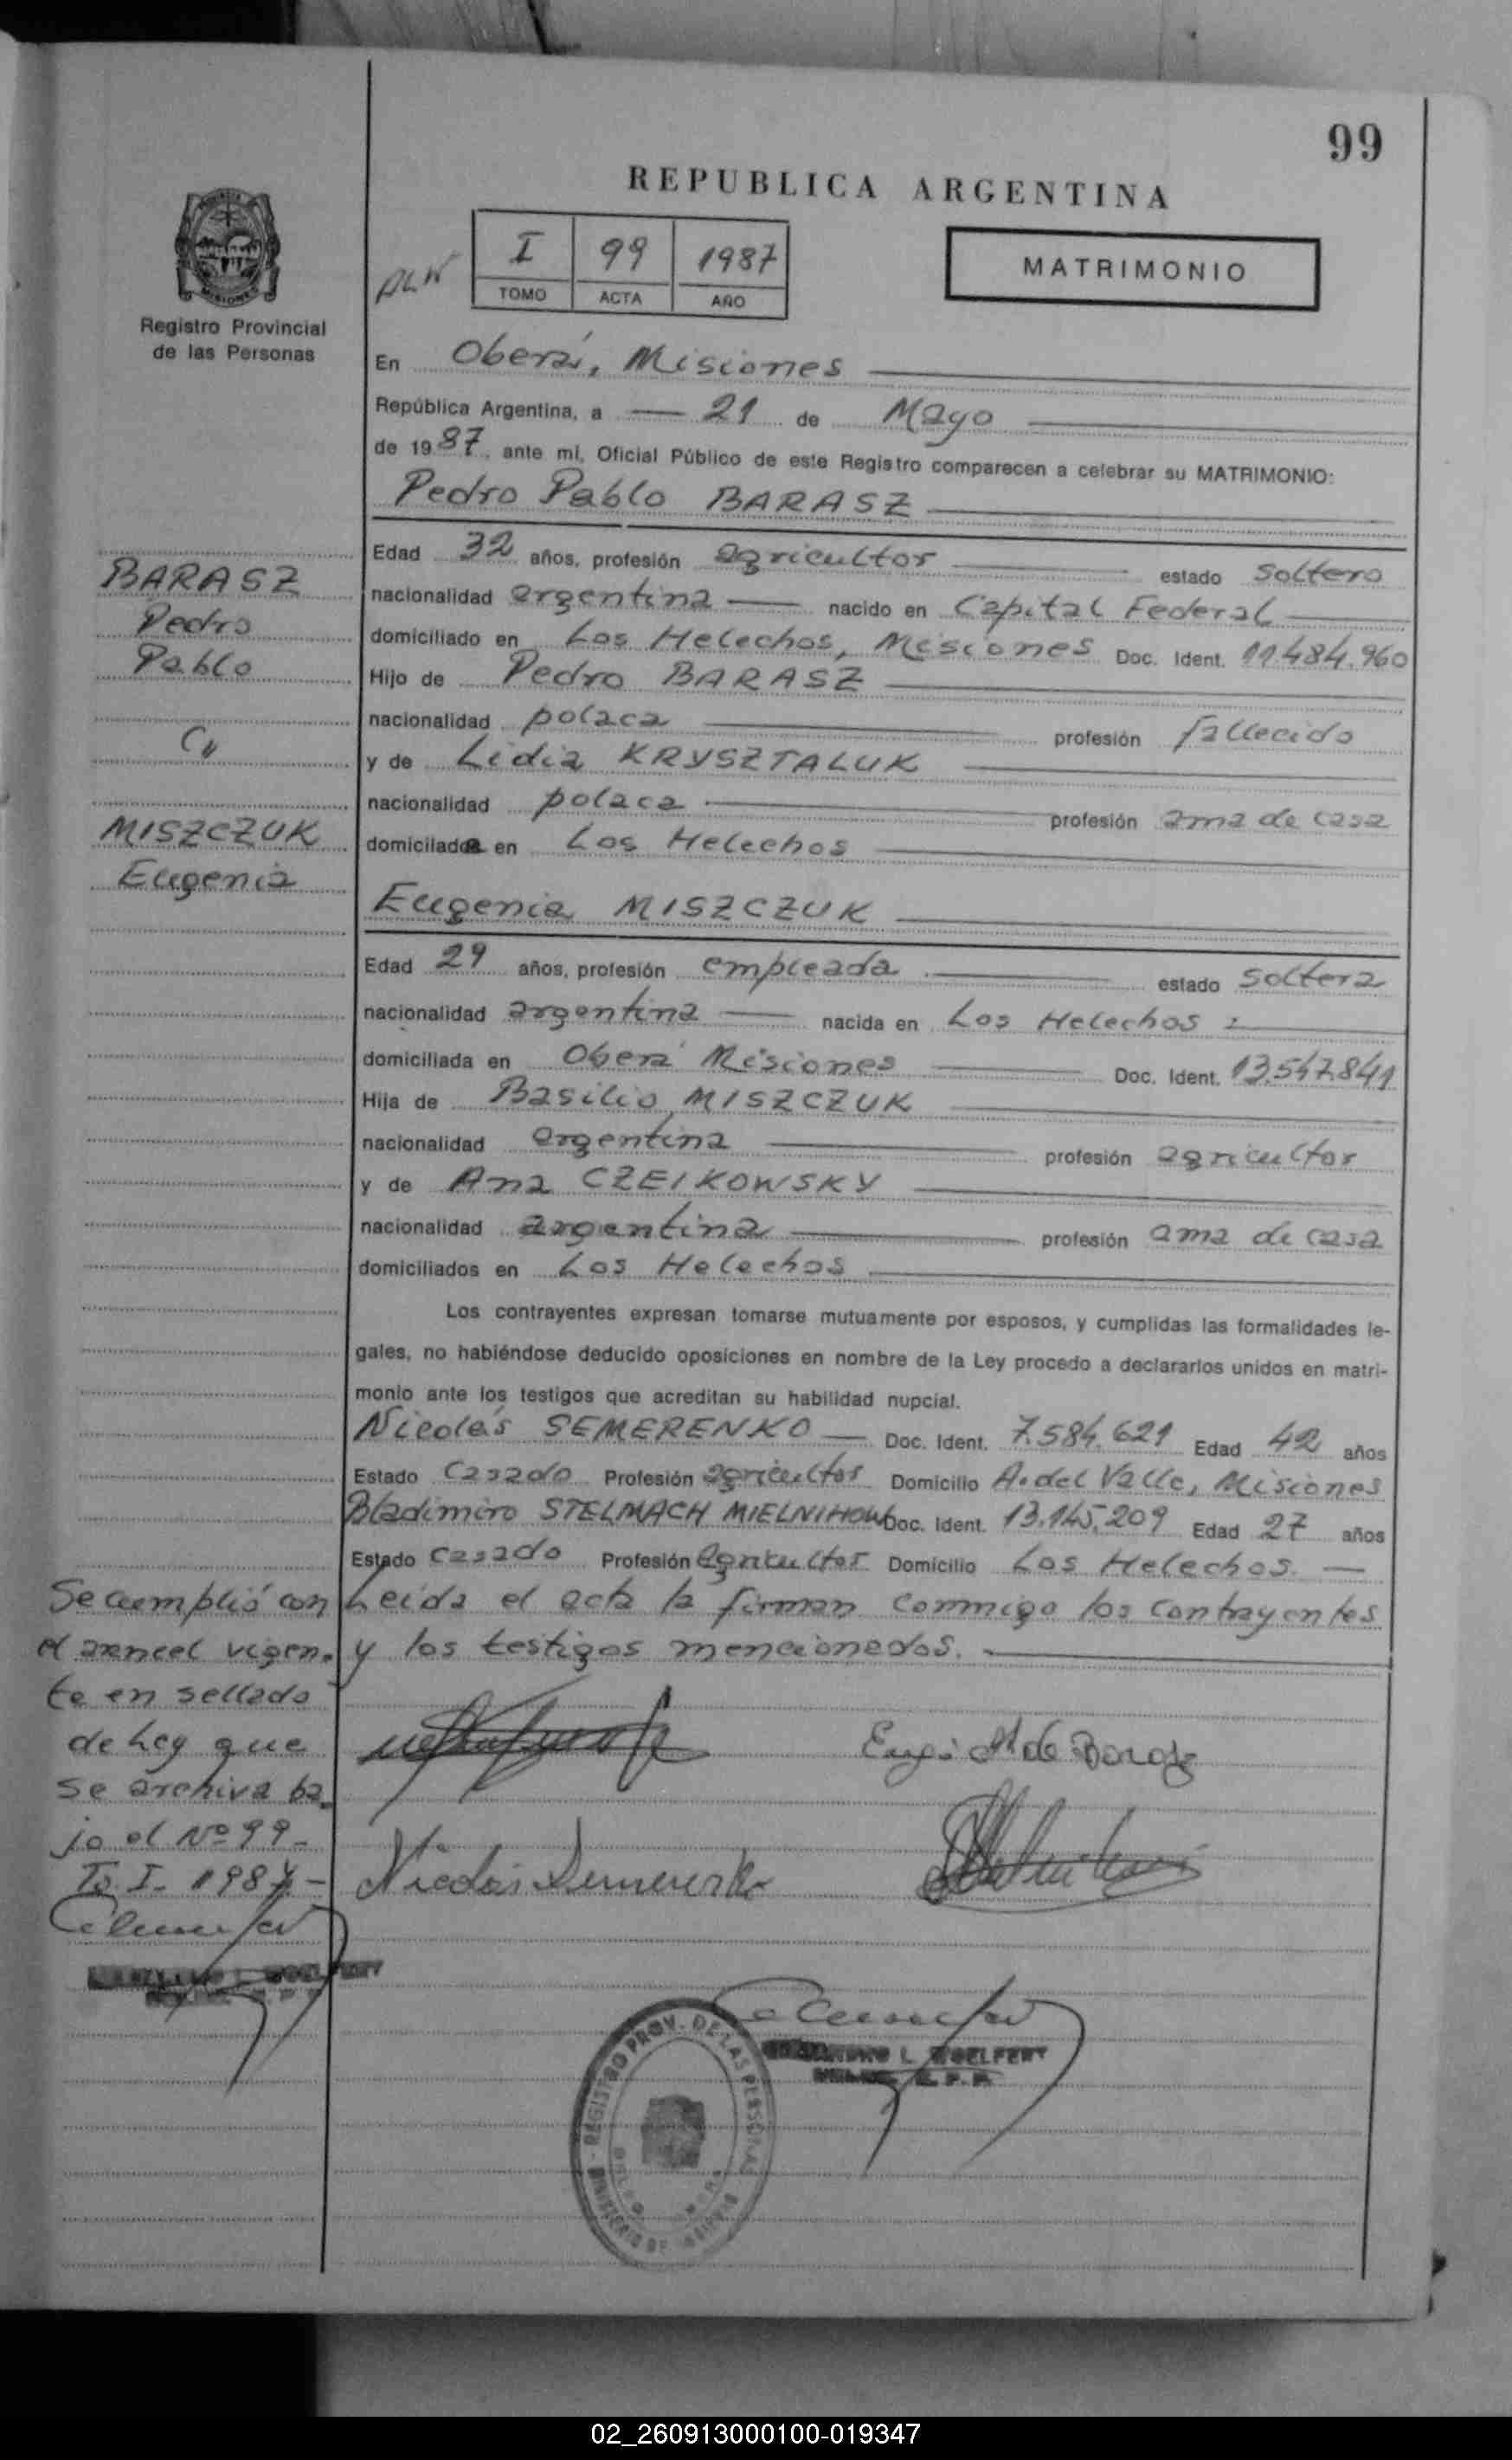 99
REPUBLICA ARGENTINA
I 99 1987
TOMO ACTA AÑO
MATRIMONIO
Registro Provincial
de las Personas
En Oberá, Misiones
República Argentina, a 21 de Mayo
de 1987, ante mí, Oficial Público de este Registro comparecen a celebrar su MATRIMONIO:
Pedro Pablo BARASZ
Edad 32 años, profesión agricultor estado soltero
BARASZ
nacionalidad argentina nacido en Capital Federal
Pedro
domiciliado en Los Helechos, Misiones Doc. Ident. 11.484.960
Pablo
Hijo de Pedro BARASZ
nacionalidad polaca profesión fallecido
C//
y de Lidia KRYSZTALUK
nacionalidad polaca profesión ama de casa
MISZCZUK
domicilada en Los Helechos
Eugenia
Eugenia MISZCZUK
Edad 29 años, profesión empleada estado soltera
nacionalidad argentina nacida en Los Helechos
domiciliada en Oberá Misiones Doc. Ident. 13.547.841
Hija de Basilio MISZCZUK
nacionalidad argentina profesión agricultor
y de Ana CZEIKOWSKY
nacionalidad argentina profesión ama de casa
domiciliados en Los Helechos
Los contrayentes expresan tomarse mutuamente por esposos, y cumplidas las formalidades le-
gales, no habiéndose deducido oposiciones en nombre de la Ley procedo a declararlos unidos en matri-
monio ante los testigos que acreditan su habilidad nupcial.
Nicolás SEMERENKO Doc. Ident. 7.584.621 Edad 42 años
Estado Casado Profesión agricultor Domicilio A. del Valle, Misiones
Bladimiro STELMACH MIELNIHOW Doc. Ident. 13.145.209 Edad 27 años
Estado Casado Profesión Agricultor Domicilio Los Helechos.
Leída el acta la firman conmigo los contrayentes
y los testigos mencionados.
Se cumplió con
el arancel vigen-
te en sellado
de Ley que
se archiva ba-
jo el Nº 99-
To. I- 1987-
Eugi M de Barasz
Nicolás Semerenko
L. WOELFERT
REGISTRO PROV. DE LAS PERSONAS
MINISTERIO DE
02_260913000100-019347